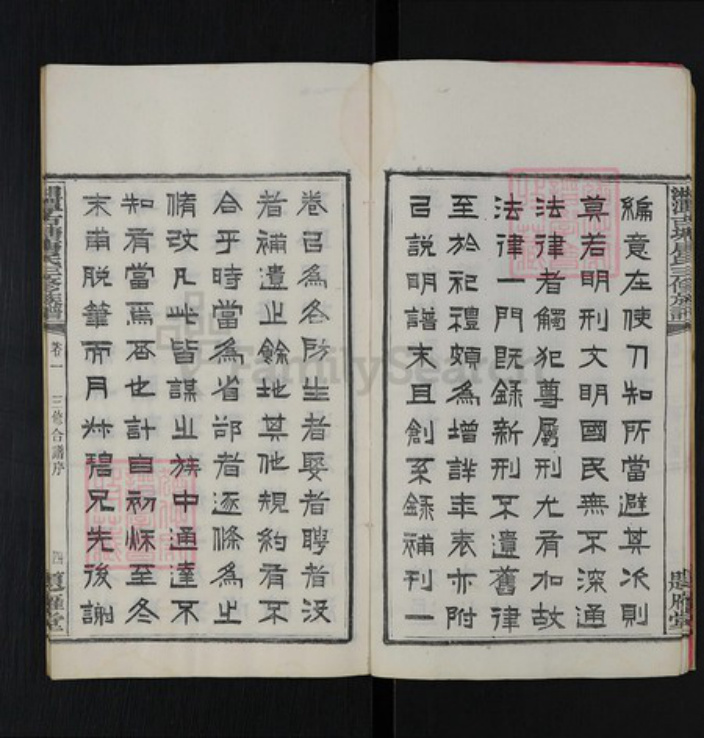 編意在使刀知所當避其次則
莫若明刑文明國民無不深通
法律者觸犯尊屬刑尤有加故
法律一門既錄新刑不遺舊律
至於祀禮頗為增詳年表亦附
己說明譜末且創系錄補刊一
卷己為各防生者娶者聘者沒
者補遺之餘地其他規約有不
合乎時當為省部者逐條為之
脩改凡此皆謀之族中通達不
知有當焉否也計自初秋至冬
末甫脫筆而月𣏌碧兄先後謝
卷一
三修合譜序
四
FamilySearch